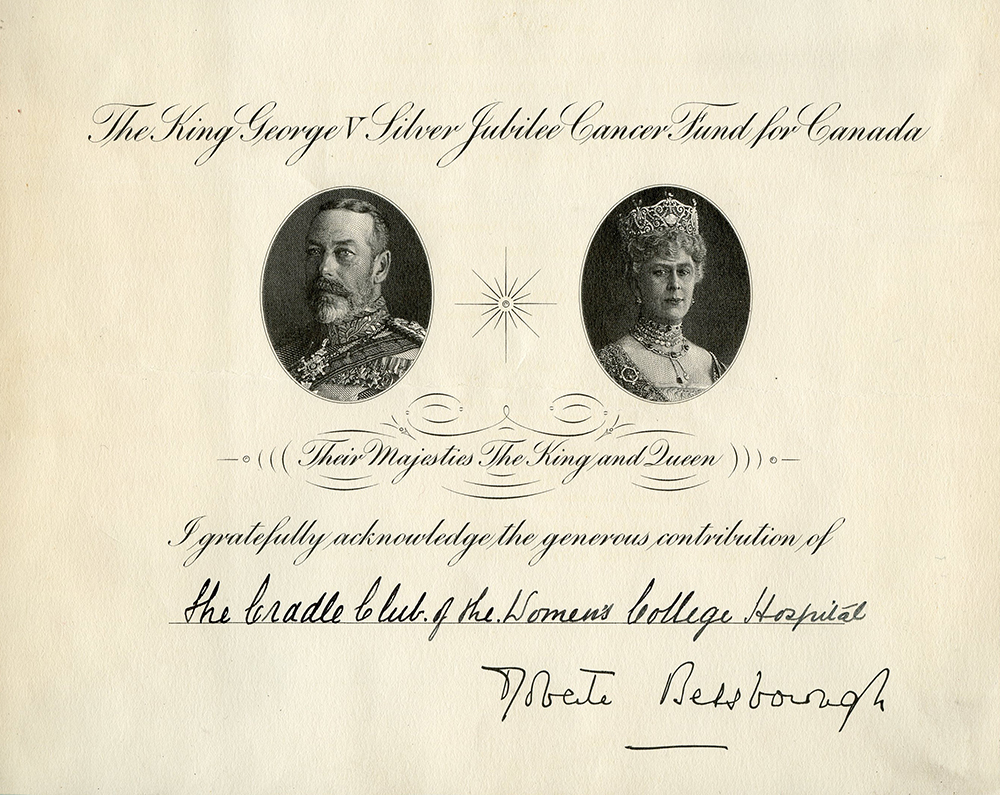 The King George V Silver Jubilee Cancer Fund for Canada
Their Majesties The King and Queen
I gratefully acknowledge the generous contribution of
The Cradle Club. of the. Women's College Hospital
Roberte Bessborough